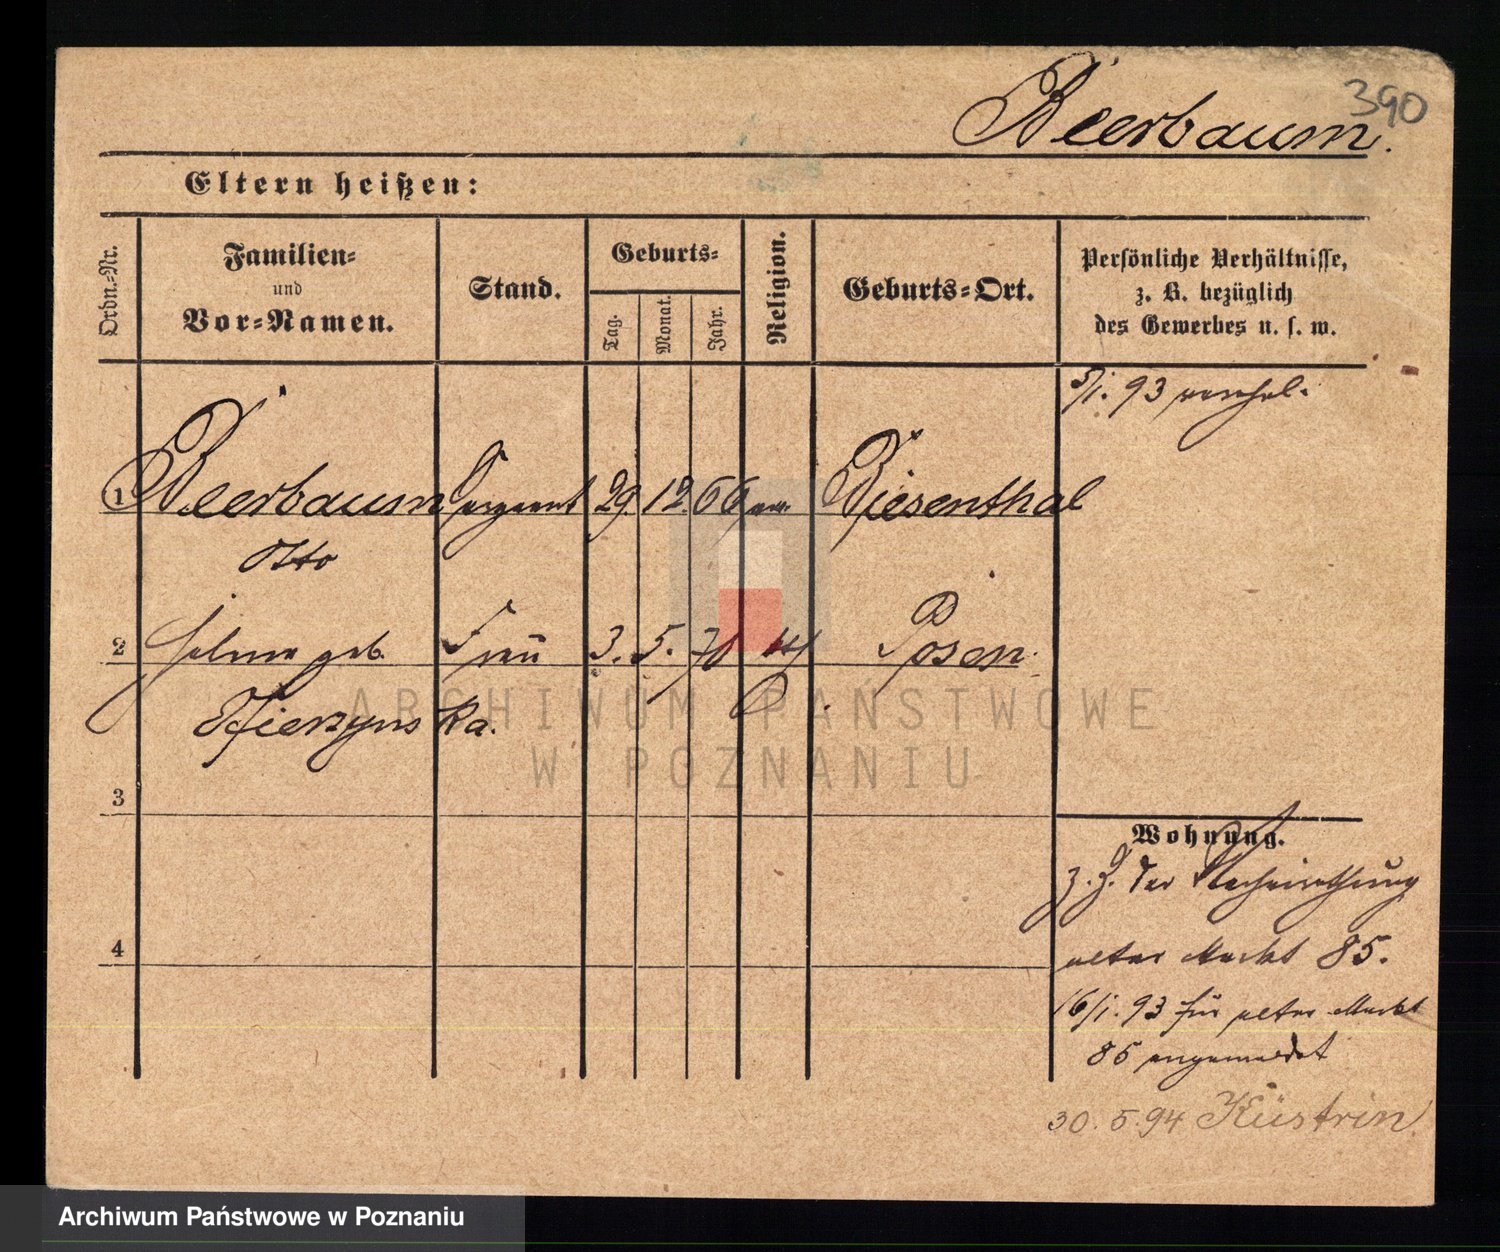 390
Beerbaum.
Eltern heißen:
Ordn.-Nr.
Familien-
und
Vor-Namen.
Stand.
Geburts-
Tag.
Monat.
Jahr.
Religion.
Geburts-Ort.
Persönliche Verhältnisse,
z. B. bezüglich
des Gewerbes u. s. w.
5/1. 93 verehel.
1 Beerbaum Sergeant 29. 12. 66 ev. Biesenthal
Otto
2 geb. Frau 3. 5. 70 kth Posen.
3
4
Wohnung.
z. Z. der Verheirathung
alter Markt 85.
16/1. 93 für alter Markt
85 angemeldet
30. 5. 94 Küstrin
ARCHIWUM PAŃSTWOWE
W POZNANIU
Archiwum Państwowe w Poznaniu